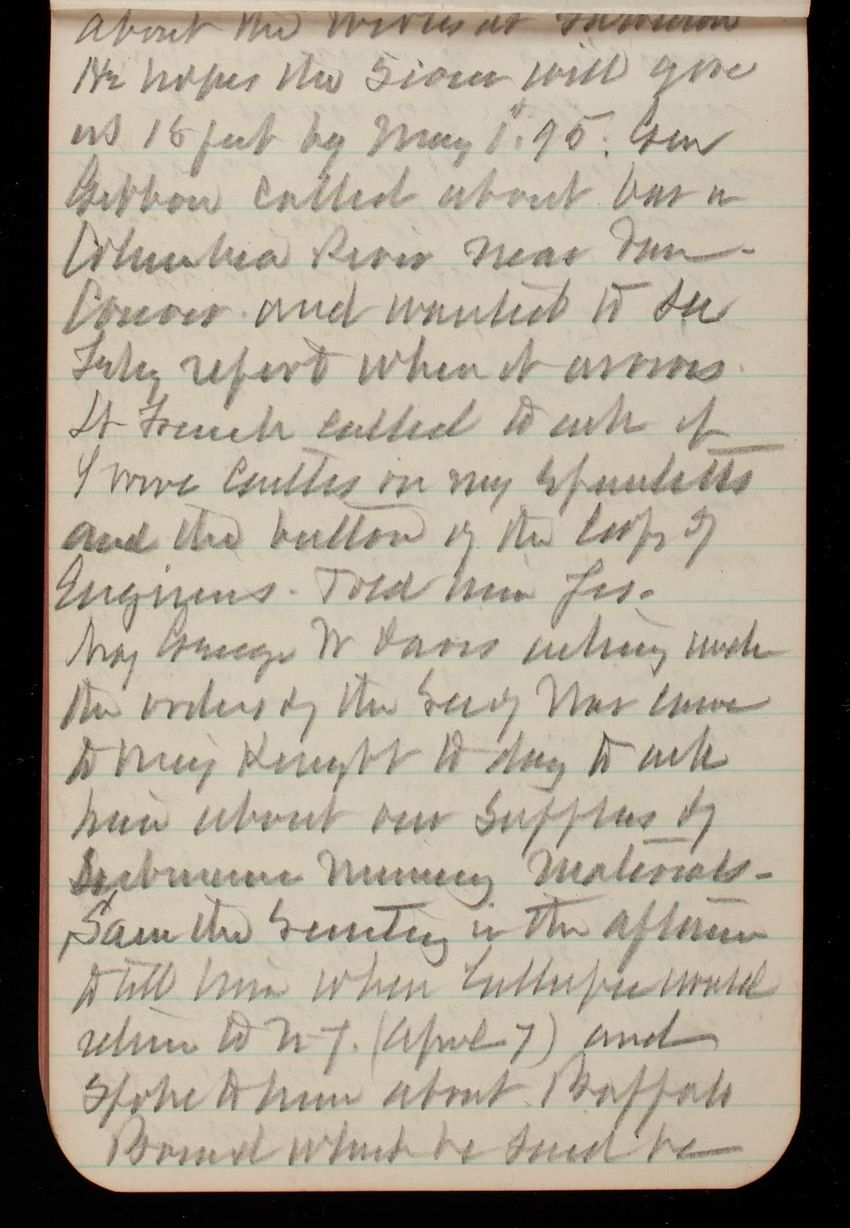 about the works at
He hopes the Sioux will give
us 18 feet by May 1st. 95. Gen
Gibbon called about bar in
Columbia River near Van-
couver. and wanted to see
report when it arrives.
Lt French called to ask if
I wore Castles on my Epauletts
and the button of the Corps of
Engineers. Told him Yes.
Maj George W Davis acting under
the orders of the Secy War came
to Maj Knight to day to ask
him about our Supplies of
Submarine Mining Materials-
Saw the Secretary in the afternoon
to tell him when Gillespie would
return to N.Y. (April 7) and
Spoke to him about Buffalo
Board which he said he